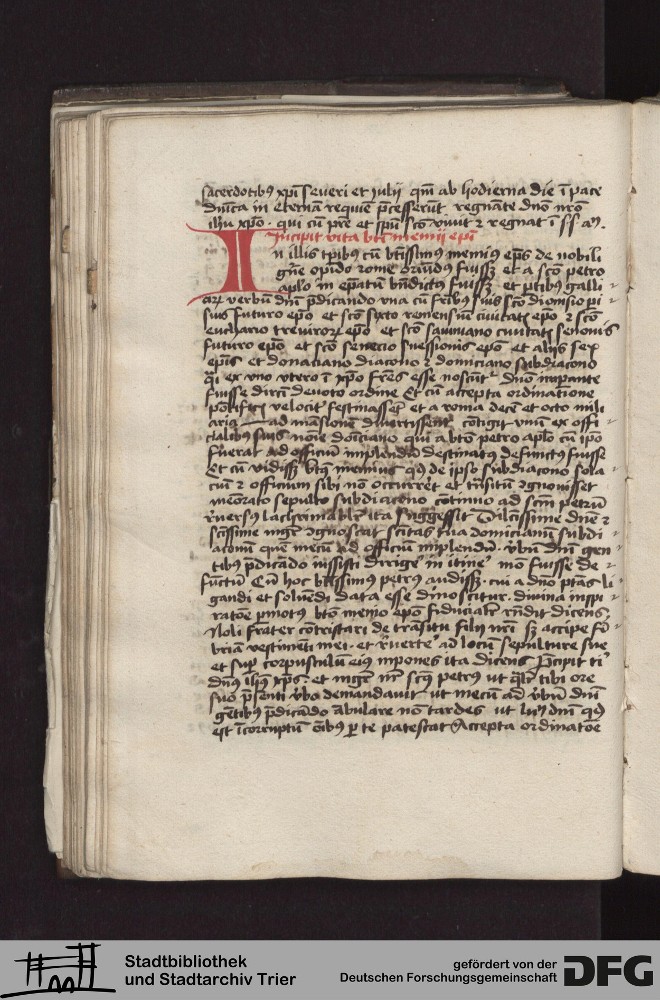 sacerdotibꝰ xp̄i severi et julij qm̄ ab hodierna die ī pace
dn̄ica in eternā requiē p̄cesserūt regnāte dno nr̄o
ihū xp̄o · qui cū pr̄e et spū sc̄o vivit ⁊ regnat ī sc̄l
Incipit vita bt̄i memij ep̄i
In illis tp̄ibꝰ cū bt̄issimus memiꝰ ep̄s de nobili
gn̄e opido rome oriūdꝰ fuissꝫ et a sc̄o petro
aplo in ep̄atū bn̄dictꝰ fuissꝫ et p̄tibꝰ galli
arꝝ verbū dn̄i p̄dicando vna cū fr̄ibꝰ suis sc̄o dionisio pi
sius futuro ep̄o et sc̄o sixto remensiū civitatꝭ ep̄o ⁊ sc̄o
euchario trevirorꝝ ep̄o et sc̄o saviniano civitatꝭ senonis
futuro ep̄o et sc̄o senecio suessionis ep̄o et aliis sex
ep̄is et donaciano diacono ⁊ domiciano subdiacono
q̄i ex vno vtero ī xp̄o fr̄es esse noscūt᷑ dn̄o imperante
fuisse devoto ordine Et cū accepta ordinatione
pōtificꝭ velocit᷑ festinassē et a roma decē et octo mili
aria ad māsionē divertissent cōtigit vnū ex offi
cialibꝰ suis noīe domiciano qui a bt̄o petro aplo cū ip̄o
fuerat ad officiū implendū destinatꝰ defunctū fuisse
Et cū vidissꝫ bt̄s memius qd̄ de ipso subdiacono sola
ciū ⁊ officium sibi nō occurrēt et trāsitū ⁊gnovisset
memorato sepulto subdiacono cōtinuo ad sc̄m petrū
r̄versus lachrimabilit᷑ ita suggessit Dilc̄issime dn̄e ⁊
sc̄issime mg̅r ⁊gnoscat sc̄itas tua domicianū subdi
aconū quē mecū ad officiū implendū · v̄bū dn̄i gen
tibꝰ p̄dicādo iussisti dirige᷑ in itine᷑ meo fuisse de
fūctū Cū hoc bt̄issimus petrus audissꝫ · cui a dn̄o ptās li
gandi et solvēdi data esse dinoscitur · divina inspi
ratōe p̄motus bt̄o memio ep̄o fiducialit᷑ r̄ndit dicens
Noli frater cōtristari de trāsitu filij nr̄i sꝫ accipe fī
briā vestimēti mei · et r̄verte᷑ ad locū sepulture sue
et sup̱ corpusculū eiꝰ inpones ita dicens Precipit ti
dn̄us ihs xp̄s · et mg̅r nr̄ sc̄us petrus vt q̄lit᷑ tibi ore
suo p̄senti v̄bo demandavit vt mecū ad v̄bū dn̄i
gētibꝰ p̄dicādo ābulare nō tardes vt dn̄i qd̄
est īcorruptū oībꝰ ꝑ te patescat Accepta ordinatōe
Stadtbibliothek
und Stadtarchiv Trier
gefördert von der
Deutschen Forschungsgemeinschaft
DFG